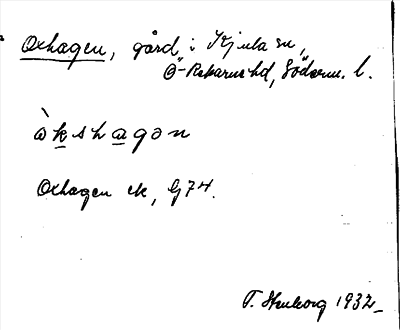 Oxhagen, gård i Kjula sn,
Ö-Rekarne hd, Söderm. l.
ò̀kshagan
Oxhagen ek, G74.
1932